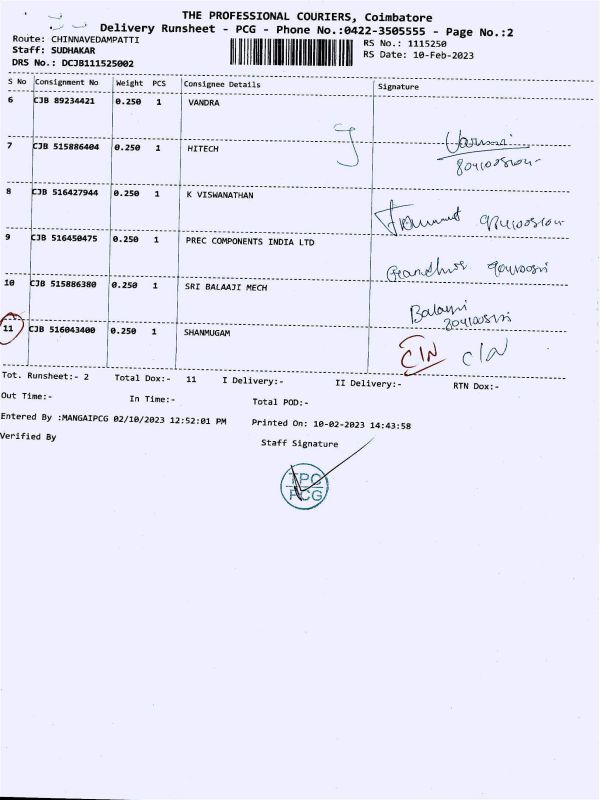 THE PROFESSIONAL COURIERS, Coimbatore
Delivery Runsheet - PCG - Phone No.:0422-3505555 - Page No.:2
Route: CHINNAVEDAMPATTI RS No.: 1115250
Staff: SUDHAKAR RS Date: 10-Feb-2023
DRS No.: DCJB111525002
S No Consignment No Weight PCS Consignee Details Signature
6 CJB 89234421 0.250 1 VANDRA
7 CJB 515886404 0.250 1 HITECH
8 CJB 516427944 0.250 1 K VISWANATHAN
9 CJB 516450475 0.250 1 PREC COMPONENTS INDIA LTD
10 CJB 515886380 0.250 1 SRI BALAAJI MECH
Balaji
11 CJB 516043400 0.250 1 SHANMUGAM
C/N C/N
Tot. Runsheet:- 2 Total Dox:- 11 I Delivery:- II Delivery:- RTN Dox:-
Out Time:- In Time:- Total POD:-
Entered By :MANGAIPCG 02/10/2023 12:52:01 PM Printed On: 10-02-2023 14:43:58
Verified By Staff Signature
TPC
PCG